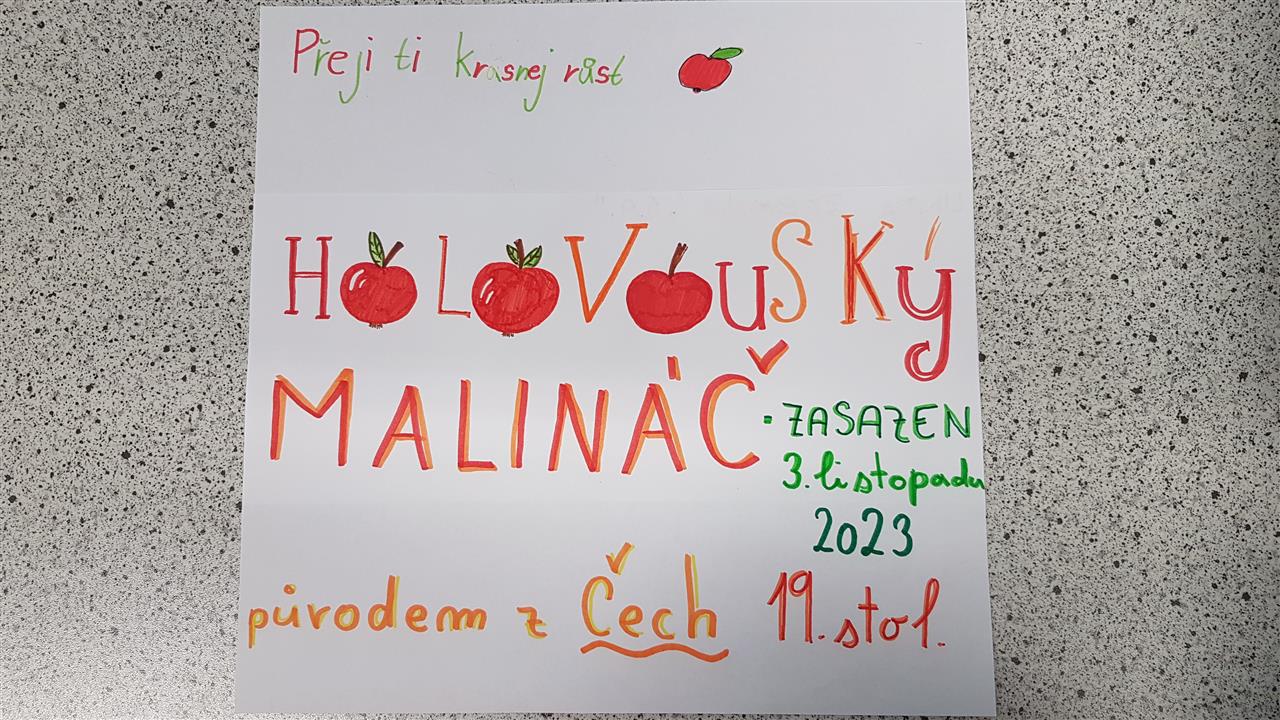 Přeji ti krasnej růst
HOLOVOUSKÝ
MALINÁČ
• ZASAZEN
3. listopadu
2023
původem z Čech 19. stol.